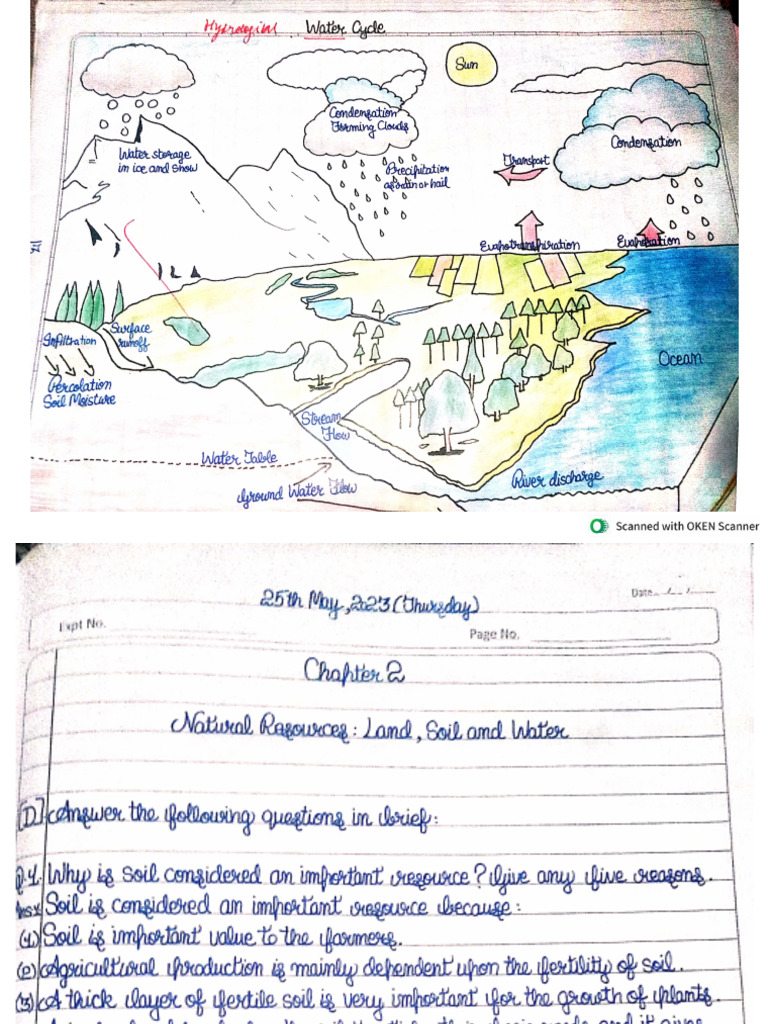 Hydrological Water Cycle
Sun
Condensation
Forming Clouds
Condensation
Water storage
in ice and snow
Precipitation
as rain or hail
Transport
Evapotranspiration
Evaporation
Infiltration
Surface
runoff
Percolation
Soil Moisture
Ocean
Stream
Flow
Water Table
Ground Water Flow
River discharge
Scanned with OKEN Scanner
25th May, 2023 (Thursday)
Date
Expt No.
Page No.
Chapter 2
Natural Resources: Land, Soil and Water
[D] Answer the following questions in brief:
Q.1. Why is soil considered an important resource? Give any five reasons.
Ans: Soil is considered an important resource because:
(1) Soil is important value to the farmers.
(2) Agricultural production is mainly dependent upon the fertility of soil.
(3) A thick layer of fertile soil is very important for the growth of plants.